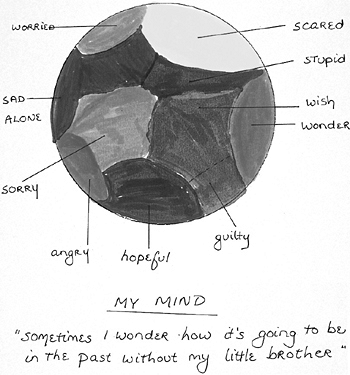 WORRIED
SCARED
STUPID
SAD
ALONE
WISH
WONDER
SORRY
angry
hopeful
guilty
MY MIND
"Sometimes I wonder how it's going to be
in the past without my little brother"